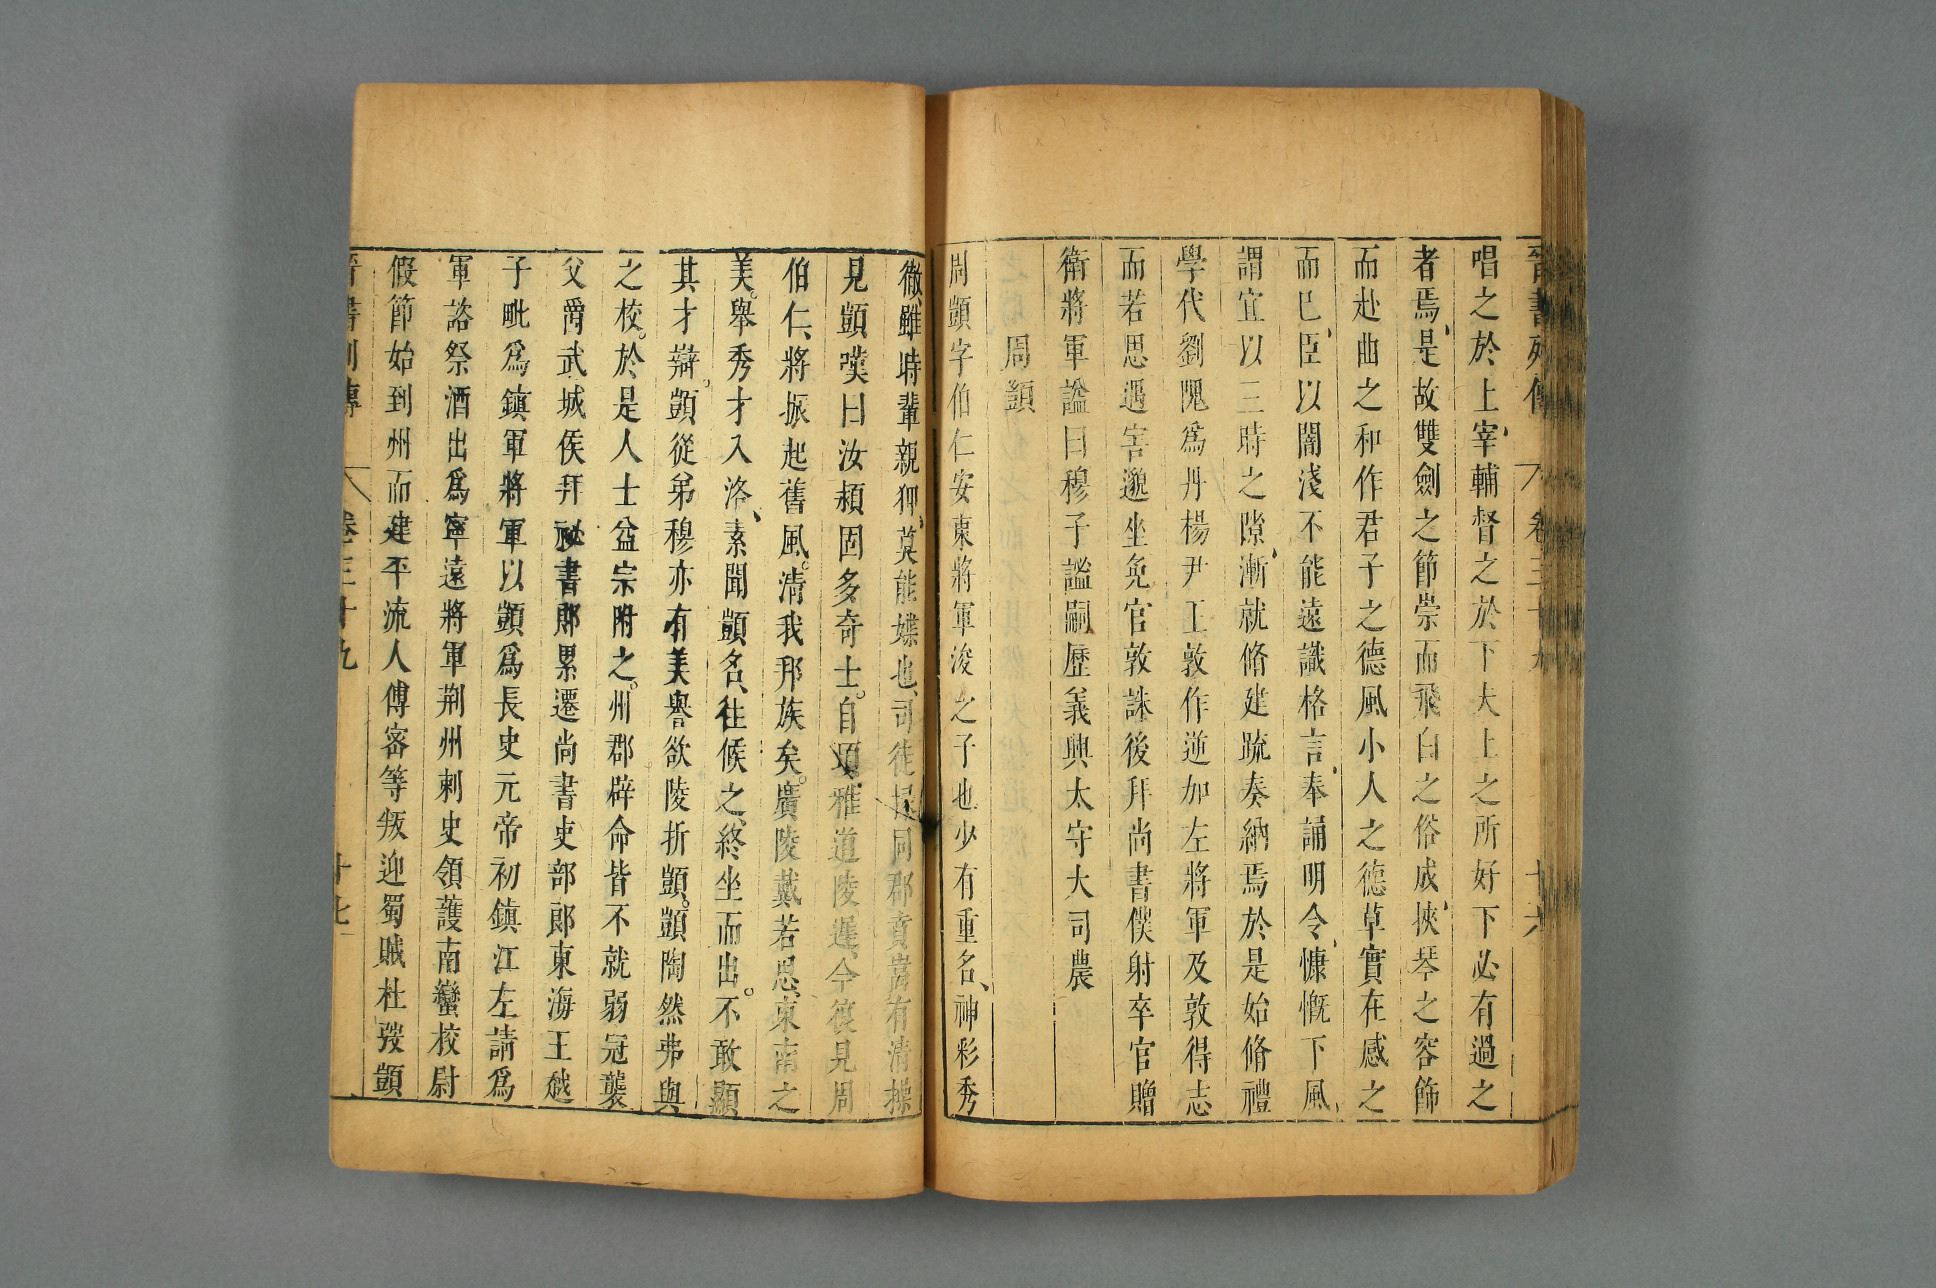 晉書列傳 卷三十九 十六
唱之於上、宰輔督之於下、夫上之所好、下必有過之
者焉、是故雙劍之節崇、而飛白之俗成、挾琴之容飾
而赴曲之和作、君子之德風、小人之德草、實在感之
而已、臣以闇淺、不能遠識格言、奉誦明令、慷慨下風、
謂宜以三時之隙、漸就脩建、疏奏納焉、於是始脩禮
學代劉隗爲丹楊尹王敦作逆加左將軍及敦得志
而若思遇害邈坐免官敦誅後拜尚書僕射卒官贈
衛將軍謚曰穆子謐嗣歷義興太守大司農
周顗
周顗字伯仁安東將軍浚之子也少有重名、神彩秀
徹、雖時輩親狎、莫能媟也、司徒掾同郡賁嵩有清操
見顗嘆曰汝潁固多奇士。自頃雅道陵遲、今復見周
伯仁、將振起舊風。清我邦族矣。廣陵戴若思、東南之
美。舉秀才入洛、素聞顗名、往候之、終坐而出。不敢顯
其才辯。顗從弟穆亦有美譽欲陵折顗。顗陶然弗與
之校。於是人士益宗附之。州郡辟命皆不就弱冠襲
父爵武城侯拜祕書郎累遷尚書吏部郎東海王越
子毗爲鎮軍將軍以顗爲長史元帝初鎮江左請爲
軍諮祭酒出爲寧遠將軍荆州刺史領護南蠻校尉
假節始到州而建平流人傅密等叛迎蜀賊杜弢顗
晉書列傳 卷三十九 十七